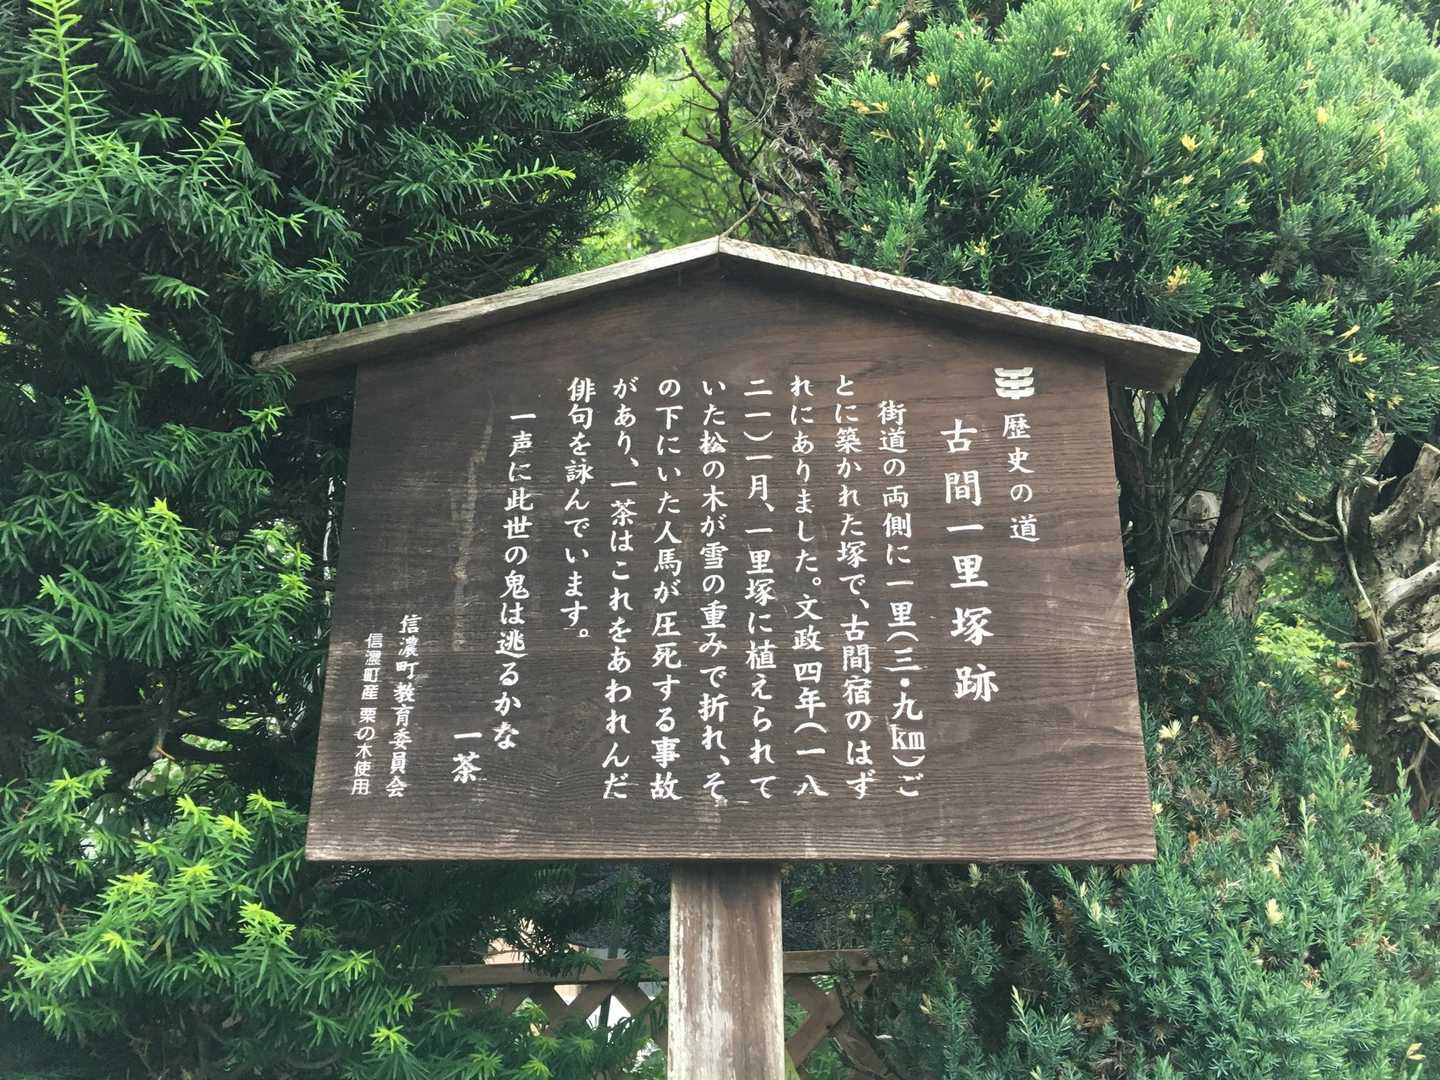 歴史の道
古間一里塚跡
街道の両側に一里(三・九km)ご
とに築かれた塚で、古間宿のはず
れにありました。文政四年(一八
二一)一月、一里塚に植えられて
いた松の木が雪の重みで折れ、そ
の下にいた人馬が圧死する事故
があり、一茶はこれをあわれんだ
俳句を詠んでいます。
一声に此世の鬼は逃るかな
一茶
信濃町教育委員会
信濃町産 栗の木使用